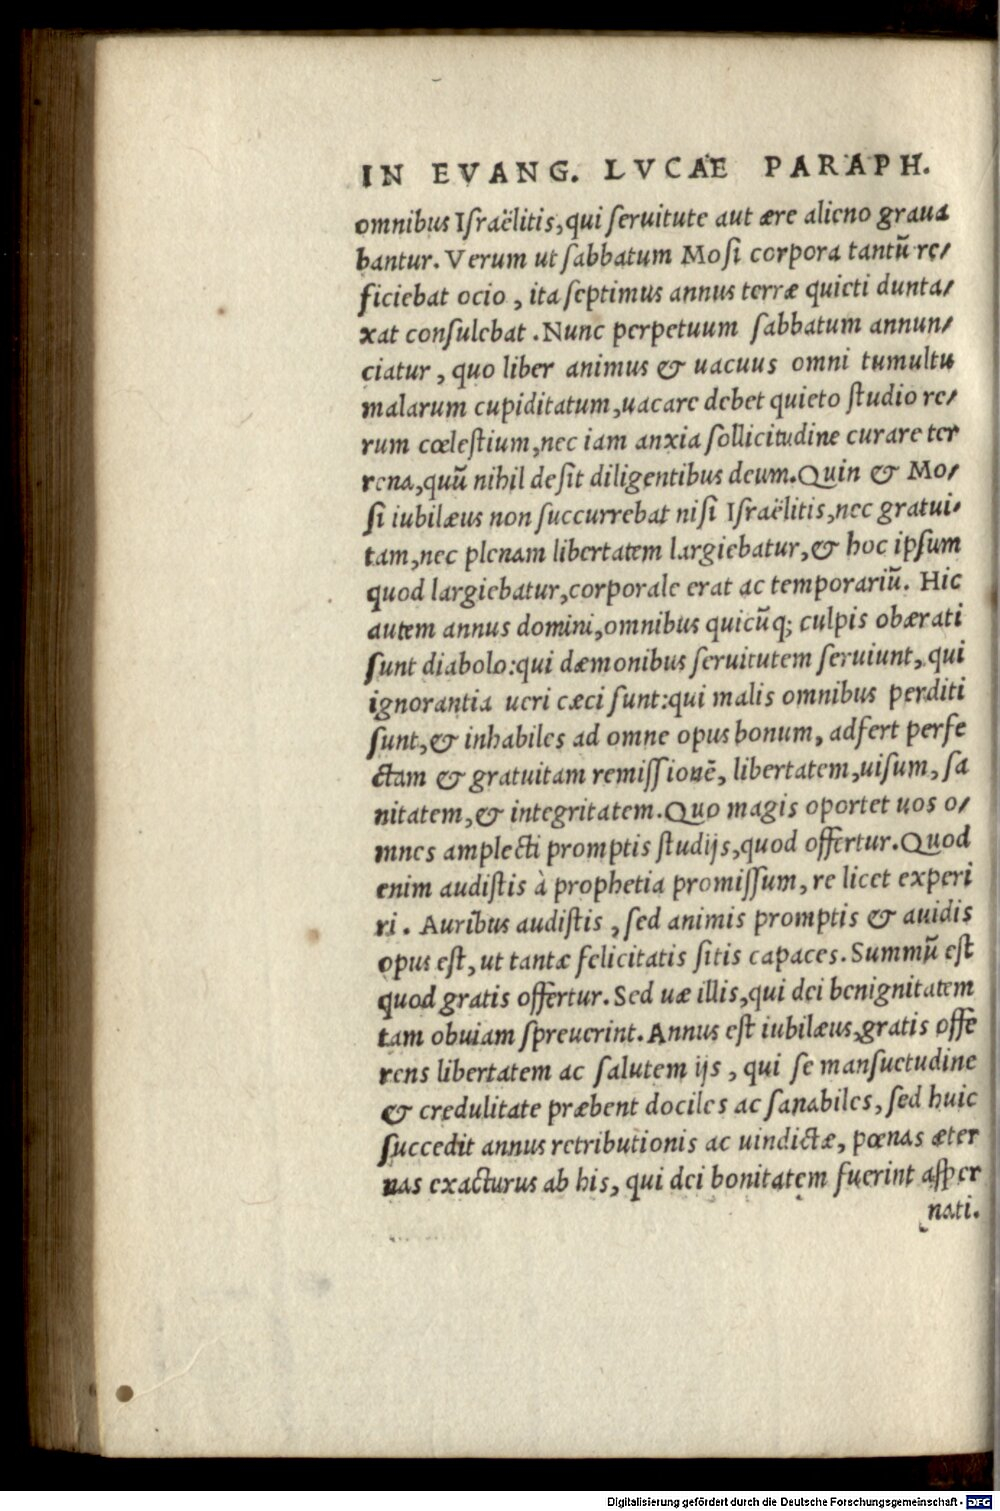 IN EVANG. LVCAE PARAPH.
omnibus Iſraëlitis, qui ſeruitute aut ære alieno graua
bantur. Verum ut ſabbatum Moſi corpora tantū re/
ficiebat ocio, ita ſeptimus annus terræ quieti dunta/
xat conſulebat. Nunc perpetuum ſabbatum annun/
ciatur, quo liber animus & uacuus omni tumultu
malarum cupiditatum, uacare debet quieto ſtudio re/
rum cœleſtium, nec iam anxia ſollicitudine curare ter
rena, quū nihil deſit diligentibus deum. Quin & Mo/
ſi iubilæus non ſuccurrebat niſi Iſraëlitis, nec gratui/
tam, nec plenam libertatem largiebatur, & hoc ipſum
quod largiebatur, corporale erat ac temporariū. Hic
autem annus domini, omnibus quicūq; culpis obærati
ſunt diabolo: qui dæmonibus ſeruitutem ſeruiunt, qui
ignorantia ueri cæci ſunt: qui malis omnibus perditi
ſunt, & inhabiles ad omne opus bonum, adfert perfe
ctam & gratuitam remiſſionē, libertatem, uiſum, ſa
nitatem, & integritatem. Quo magis oportet uos o/
mnes amplecti promptis ſtudijs, quod offertur. Quod
enim audiſtis à prophetia promiſſum, re licet experi
ri. Auribus audiſtis, ſed animis promptis & auidis
opus eſt, ut tantæ felicitatis ſitis capaces. Summū eſt
quod gratis offertur. Sed uæ illis, qui dei benignitatem
tam obuiam ſpreuerint. Annus eſt iubilæus, gratis offe
rens libertatem ac ſalutem ijs, qui ſe manſuetudine
& credulitate præbent dociles ac ſanabiles, ſed huic
ſuccedit annus retributionis ac uindictæ, pœnas æter
nas exacturus ab his, qui dei bonitatem fuerint aſper
nati.
Digitalisierung gefördert durch die Deutsche Forschungsgemeinschaft - DFG